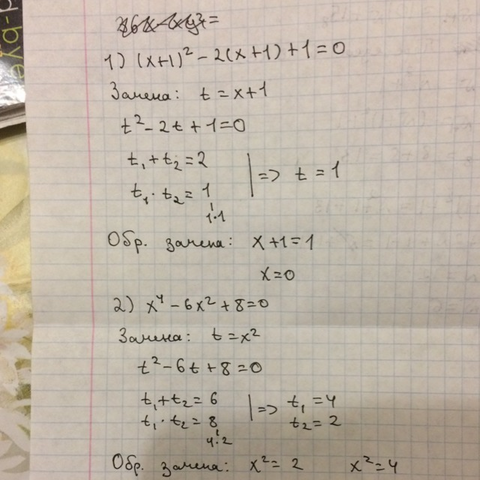 1) (x+1)² - 2(x+1) + 1 = 0
Замена: t = x+1
t² - 2t + 1 = 0
t₁ + t₂ = 2
t₁ · t₂ = 1 | => t = 1
1·1
Обр. замена: x+1 = 1
x = 0
2) x⁴ - 6x² + 8 = 0
Замена: t = x²
t² - 6t + 8 = 0
t₁ + t₂ = 6 | => t₁ = 4
t₁ · t₂ = 8 t₂ = 2
4·2
Обр. замена: x² = 2 x² = 4